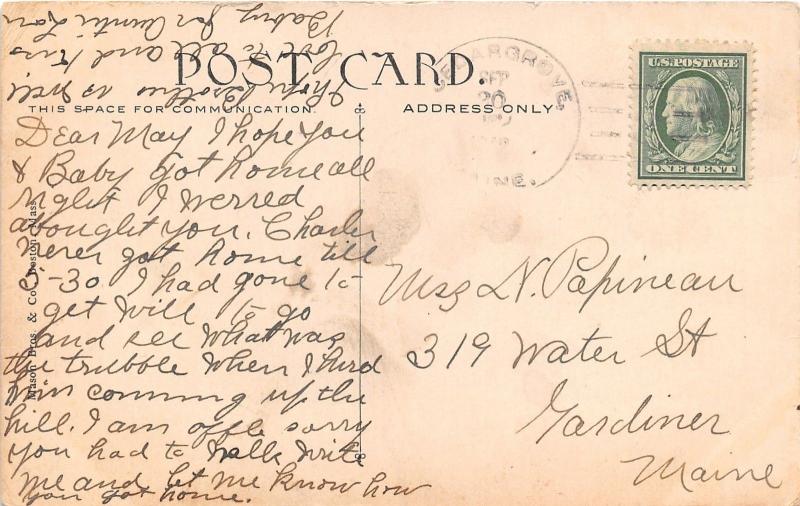 POST CARD.
THIS SPACE FOR COMMUNICATION.
ADDRESS ONLY
Dear May I hope you
& Baby got home all
right I werred
abought you. Charley
never got home till
5-30 I had gone to
get Will to go
and see what was
the trubble when I hurd
him comming up the
hill. I am offle sorry
you had to walk write
me and let me know how
you got home.
hope brother is well
love to all and kiss
Baby for Aunti
Mason Bros. & Co. Boston, Mass
CEDARGROVE,
SEP
20
MAINE.
U.S. POSTAGE
ONE CENT
N. Papineau
319 Water St
Gardiner
Maine